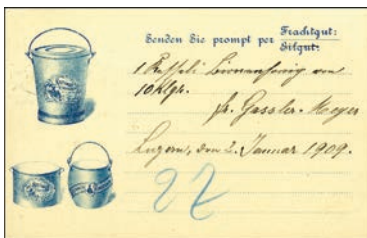 Senden Sie prompt per Frachtgut:
Eilgut:
1 Kesseli Birnenhonig von
10 Klgr.
Fr. Gassler-Meyer
Luzern, den 2. Januar 1909.
22